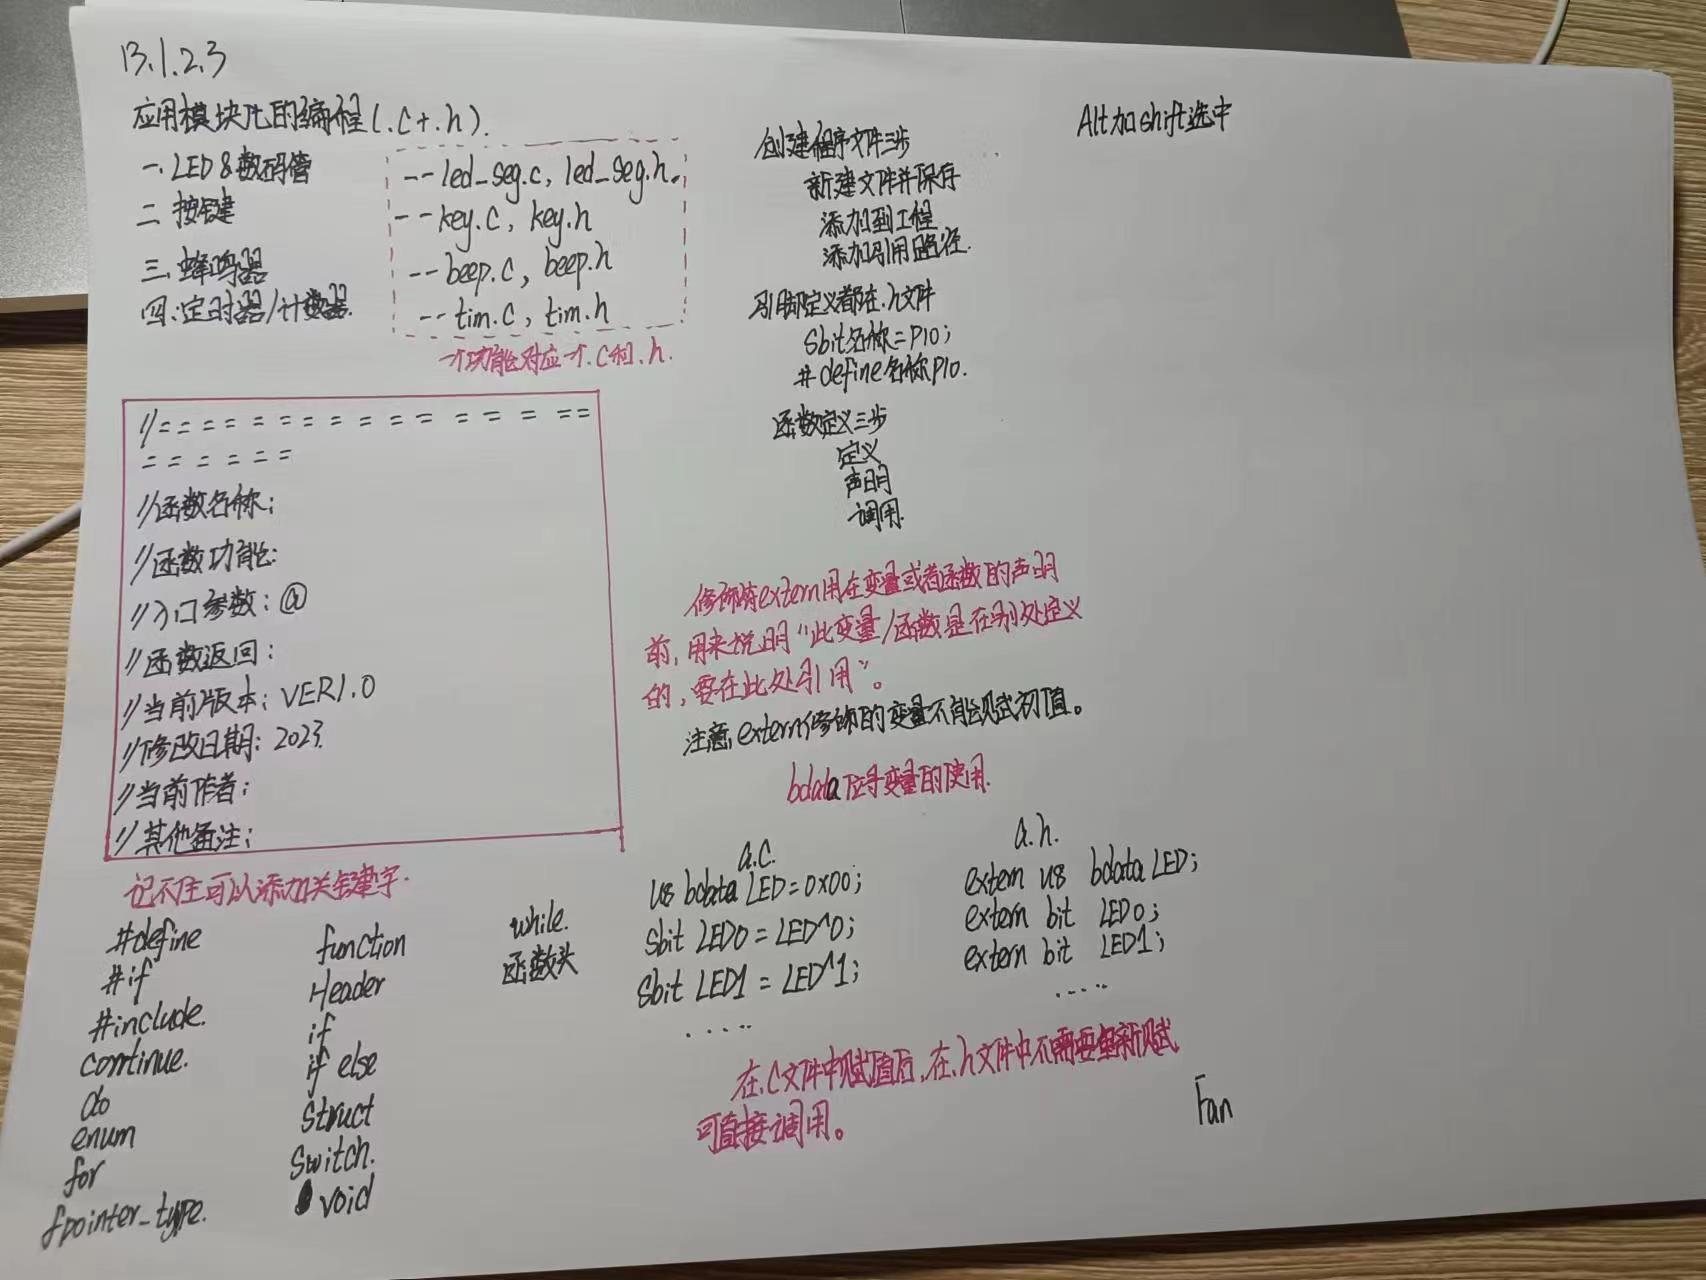 13.1.2.3
应用模块化的编程(.c+.h).
一. LED&数码管 --led_seg.c, led_seg.h.
二 按键 --key.c, key.h
三 蜂鸣器 --beep.c, beep.h
四.定时器/计数器. --tim.c, tim.h
一个功能对应一个.c和.h.
//= = = = = = = = = = = = = ==
= = = = = =
//函数名称:
//函数功能:
//入口参数:@
//函数返回:
//当前版本:VER1.0
//修改日期:2023.
//当前作者:
//其他备注:
记不住可以添加关键字.
#define
#if
#include.
continue.
do
enum
for
fpointer_type.
function
Header
if
if else
Struct
Switch.
void
while.
函数头
创建程序文件三步
新建文件并保存
添加到工程
添加引用路径.
引脚定义都在.h文件
Sbit名称=P10;
#define名称P10.
函数定义三步
定义
声明
调用.
修饰符extern用在变量或者函数的声明
前,用来说明“此变量/函数是在别处定义
的,要在此处引用”。
注意,extern修饰的变量不能赋初值。
bdata位寻变量的使用.
a.c.
u8 bdata LED=0x00;
Sbit LED0=LED^0;
Sbit LED1=LED^1;
.....
a.h.
extern u8 bdata LED;
extern bit LED0;
extern bit LED1;
.....
在.c文件中赋值后,在.h文件中不需要重新赋
可直接调用。
Alt加shift选中
Fan